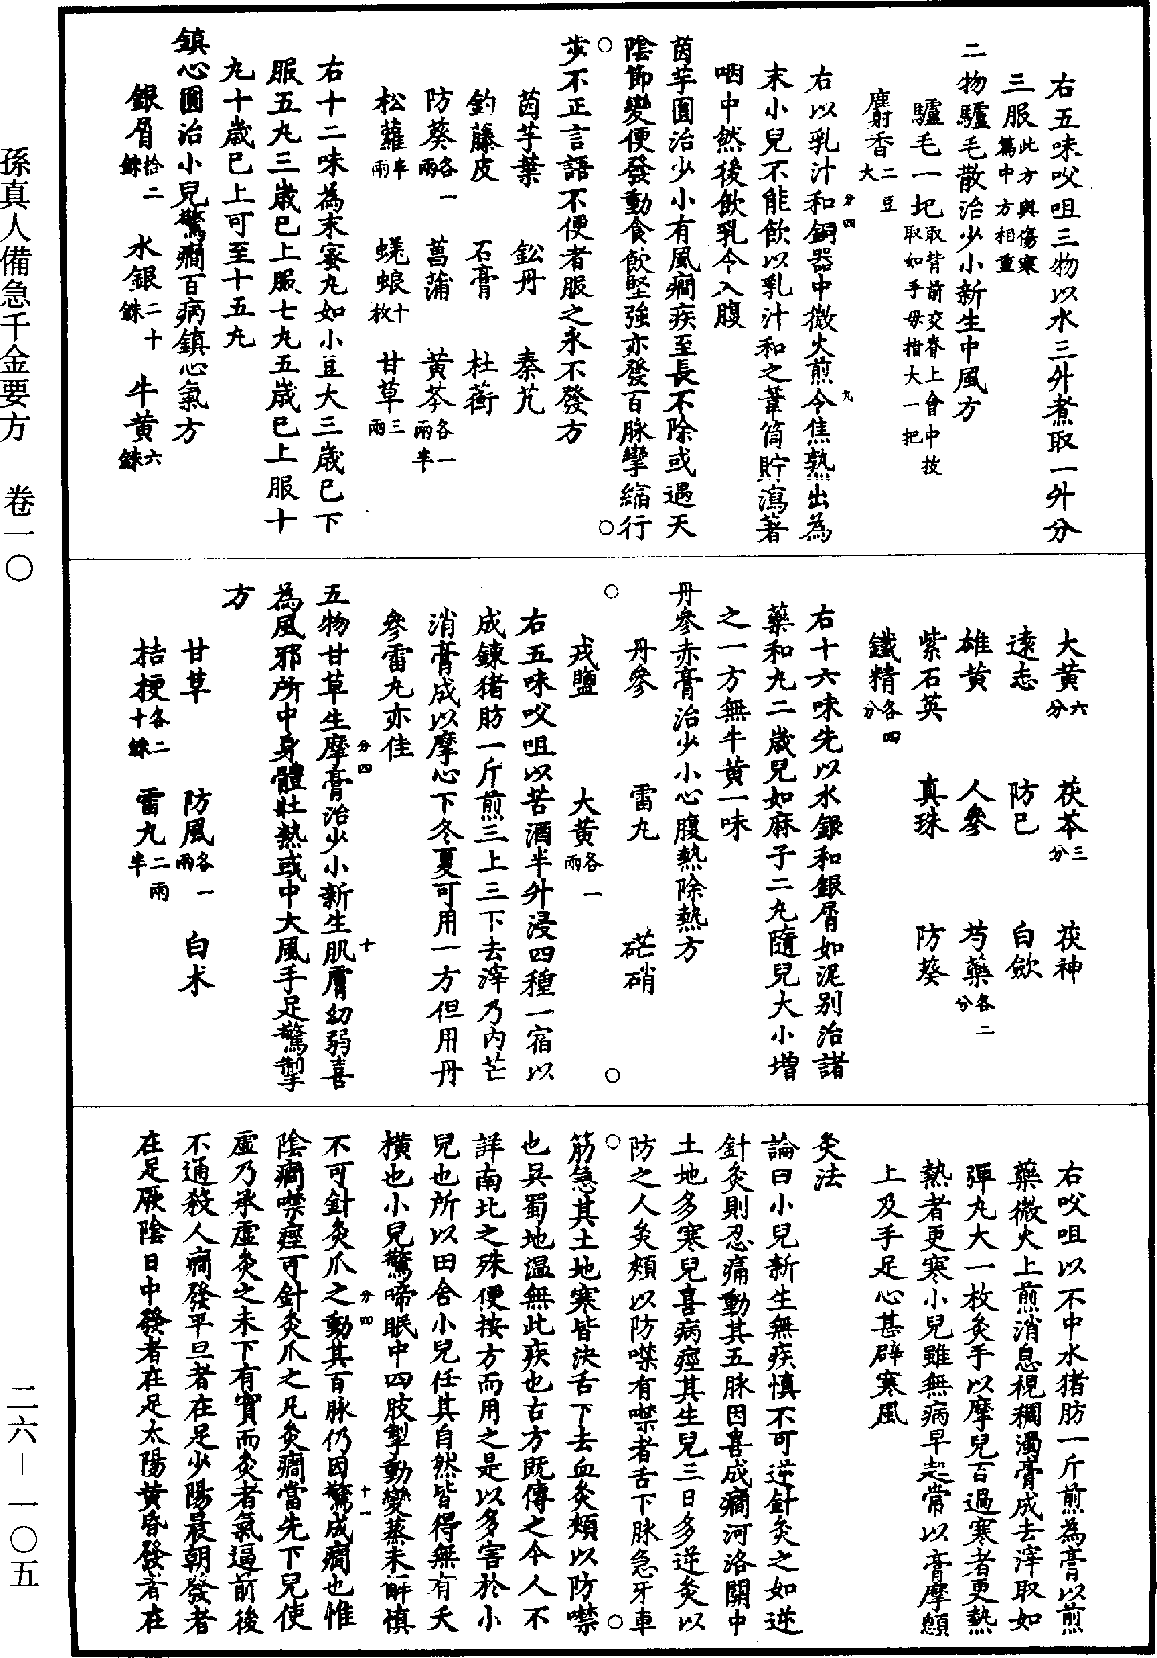 右五味㕮咀三物以水三升煮取一升分
三服此方與傷寒篇中方相重
二物驢毛散治少小新生中風方
驢毛一圯取背前交脊上會中拔取如手拇指大一把
麝香二豆大
右以乳汁和銅器中微火煎令焦熟出為
末小兒不能飲以乳汁和之葦筒貯瀉著
咽中然後飲乳令入腹
茵芋圓治少小有風癇疾至長不除或遇天
陰節變便發動食飲堅強亦發百脉攣縮行
步不正言語不便者服之永不發方
茵芋葉 鈆丹 秦艽
釣藤皮 石膏 杜蘅
防葵各一兩 菖蒲 黄芩各一兩半
松蘿半兩 蜣蜋十枚 甘草三兩
右十二味為末蜜丸如小豆大三歲已下
服五丸三歲已上服七丸五歲已上服十
丸十歲已上可至十五丸
鎮心圓治小兒驚癇百病鎮心氣方
銀屑拾二銖 水銀二十銖 牛黄六銖
大黄六分 茯苓三分 茯神
遠志 防己 白歛
雄黄 人參 芍藥各二分
紫石英 真珠 防葵
鐵精各四分
右十六味先以水銀和銀屑如泥别治諸
藥和丸二歲兒如麻子二丸隨兒大小增
之一方無牛黄一味
丹參赤膏治少小心腹熱除熱方
丹參 雷丸 芒硝
戎鹽 大黄各一兩
右五味㕮咀以苦酒半升浸四種一宿以
成鍊猪肪一斤煎三上三下去滓乃内芒
消膏成以摩心下冬夏可用一方但用丹
參雷丸亦佳
五物甘草生摩膏治少小新生肌膚幼弱喜
為風邪所中身體壯熱或中大風手足驚掣
方
甘草 防風各一兩 白术
桔梗各二十銖 雷丸二兩半
右㕮咀以不中水猪肪一斤煎為膏以煎
藥微火上煎消息視稠濁膏成去滓取如
彈丸大一枚灸手以摩兒百過寒者更熱
熱者更寒小兒雖無病早起常以膏摩顖
上及手足心甚辟寒風
灸法
論曰小兒新生無疾慎不可逆針灸之如逆
針灸則忍痛動其五脉因喜成癇河洛關中
土地多寒兒喜病痙其生兒三日多逆灸以
防之人灸頰以防噤有噤者舌下脉急牙車
筋急其土地寒皆決舌下去血灸頰以防噤
也吳蜀地温無此疾也古方既傳之今人不
詳南北之殊便按方而用之是以多害於小
兒也所以田舍小兒任其自然皆得無有夭
横也小兒驚啼眠中四肢掣動變蒸未解慎
不可針灸爪之動其百脉仍因驚成癇也惟
陰癇噤痙可針灸爪之凡灸癇當先下兒使
虚乃承虚灸之未下有實而灸者氣逼前後
不通殺人癇發平旦者在足少陽晨朝發者
在足厥陰日中發者在足太陽黄昏發者在
孫真人備急千金要方 卷一〇
二六－一〇五